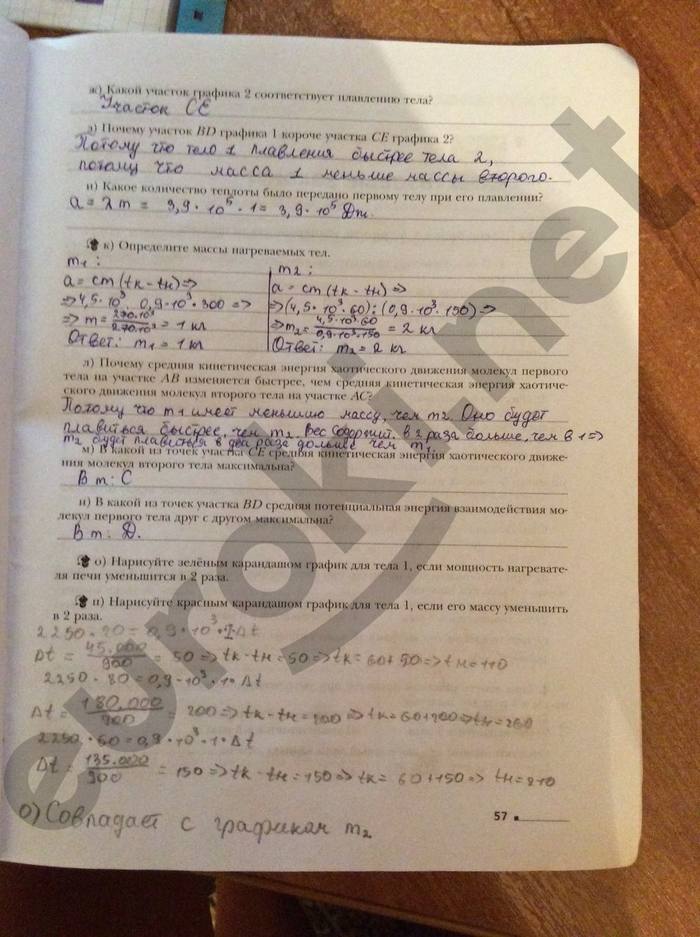 ж) Какой участок графика 2 соответствует плавлению тела?
Участок СЕ
з) Почему участок BD графика 1 короче участка CE графика 2?
Потому что тело 1 плавления быстрее тела 2,
потому что масса 1 меньше массы второго.
и) Какое количество теплоты было передано первому телу при его плавлении?
Q = λm = 3,9 · 10⁵ · 1 = 3,9 · 10⁵ Дж.
к) Определите массы нагреваемых тел.
m₁ :
Q = cm (tк - tн) =>
=> 4,5 · 10³ · 0,9 · 10³ · 300 =>
=> m = 270·10³ / 270·10³ = 1 кг
Ответ: m₁ = 1 кг
m₂ :
Q = cm (tк - tн) =>
=> (4,5 · 10³ · 60) : (0,9 · 10³ · 150) =>
=> m₂ = 4,5·10³·60 / 0,9·10³·150 = 2 кг
Ответ: m₂ = 2 кг
л) Почему средняя кинетическая энергия хаотического движения молекул первого
тела на участке AB изменяется быстрее, чем средняя кинетическая энергия хаотиче-
ского движения молекул второго тела на участке AC?
Потому что m₁ имеет меньшую массу, чем m₂. Оно будет
плавиться быстрее, чем m₂. Вес содержит. в 2 раза больше, чем в 1 =>
m₂ будет плавиться в два раза дольше чем m₁.
м) В какой из точек участка CE средняя кинетическая энергия хаотического движе-
ния молекул второго тела максимальна?
В т: С
н) В какой из точек участка BD средняя потенциальная энергия взаимодействия мо-
лекул первого тела друг с другом максимальна?
В т: Д.
о) Нарисуйте зелёным карандашом график для тела 1, если мощность нагревате-
ля печи уменьшится в 2 раза.
п) Нарисуйте красным карандашом график для тела 1, если его массу уменьшить
в 2 раза.
2250 · 20 = 0,9 · 10³ · 1 · Δt
Δt = 45.000 / 900 = 50 => tк - tн = 50 => tк = 60 + 50 => tн = 110
2250 · 80 = 0,9 · 10³ · 1 · Δt
Δt = 180.000 / 900 = 200 => tк - tн = 200 => tк = 60+200 => tн = 260
2250 · 60 = 0,9 · 10³ · 1 · Δt
Δt = 135.000 / 900 = 150 => tк - tн = 150 => tк = 60+150 => tн = 210
о) Совпадает с графикам m₂
57
euroki.net